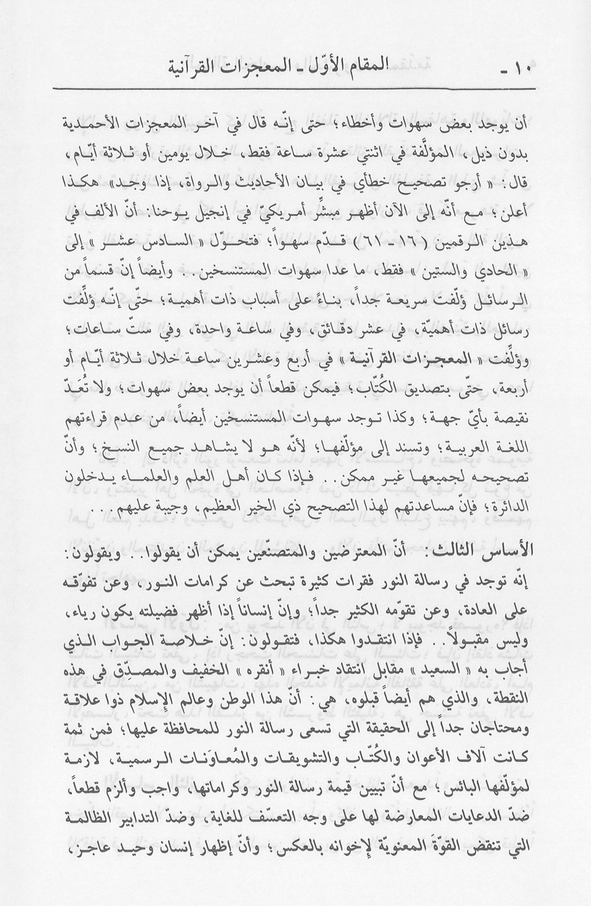 ١٠ - المقام الأوّل - المعجزات القرآنية
أن يوجد بعض سهوات وأخطاء؛ حتى إنّه قال في آخر المعجزات الأحمدية
بدون ذيل، المؤلَّفة في اثنتي عشرة ساعة فقط، خلال يومين أو ثلاثة أيّام،
قال: « أرجو تصحيح خطأي في بيان الأحاديث والرواة، إذا وجد» هكذا
أعلن؛ مع أنّه إلى الآن أظهر مبشِّر أمريكيّ في إنجيل يوحنا: أنّ الألف في
هذين الرقمين ( ١٦ - ٦١) قدّم سهواً؛ فتحوّل « السادس عشر » إلى
« الحادي والستين » فقط، ما عدا سهوات المستنسخين.. وأيضاً إنّ قسماً من
الرسائل ؤلّفت سريعة جداً، بناءً على أسباب ذات أهمية؛ حتّى إنّه ؤلِّفت
رسائل ذات أهميّة، في عشر دقائق، وفي ساعة واحدة، وفي ستّ ساعات؛
وؤلِّفت « المعجزات القرآنية » في أربع وعشرين ساعة خلال ثلاثة أيّام أو
أربعة، حتّى بتصديق الكُتّاب؛ فيمكن قطعاً أن يوجد بعض سهوات؛ ولا تُعَدّ
نقيصة بأيّ جهة؛ وكذا توجد سهوات المستنسخين أيضاً، من عدم قراءتهم
اللغة العربية؛ وتسند إلى مؤلّفها؛ لأنّه هو لا يشاهد جميع النسخ؛ وأنّ
تصحيحه لجميعها غير ممكن.. فإذا كان أهل العلم والعلماء يدخلون
الدائرة؛ فإنّ مساعدتهم لهذا التصحيح ذي الخير العظيم، وجيبة عليهم...
الأساس الثالث: أنّ المعترضين والمتصنّعين يمكن أن يقولوا.. ويقولون:
إنّه توجد في رسالة النور فقرات كثيرة تبحث عن كرامات النور، وعن تفوّقه
على العادة، وعن تقوّمه الكثير جداً؛ وإنّ إنساناً إذا أظهر فضيلته يكون رياء،
وليس مقبولاً.. فإذا انتقدوا هكذا، فتقولون: إنّ خلاصة الجواب الذي
أجاب به « السعيد » مقابل انتقاد خبراء « أنقره » الخفيف والمصدّق في هذه
النقطة، والذي هم أيضاً قبلوه، هي: أنّ هذا الوطن وعالم الإسلام ذوا علاقة
ومحتاجان جداً إلى الحقيقة التي تسعى رسالة النور للمحافظة عليها؛ فمن ثمة
كانت آلاف الأعوان والكُتّاب والتشويقات والمُعاوَنات الرسمية، لازمة
لمؤلّفها البائس؛ مع أنّ تبيين قيمة رسالة النور وكراماتها، واجب وألزم قطعاً،
ضدّ الدعايات المعارضة لها على وجه التعسّف للغاية، وضدّ التدابير الظالمة
التي تنقض القوّة المعنويّة لإخوانه بالعكس؛ وأنّ إظهار إنسان وحيد عاجز،